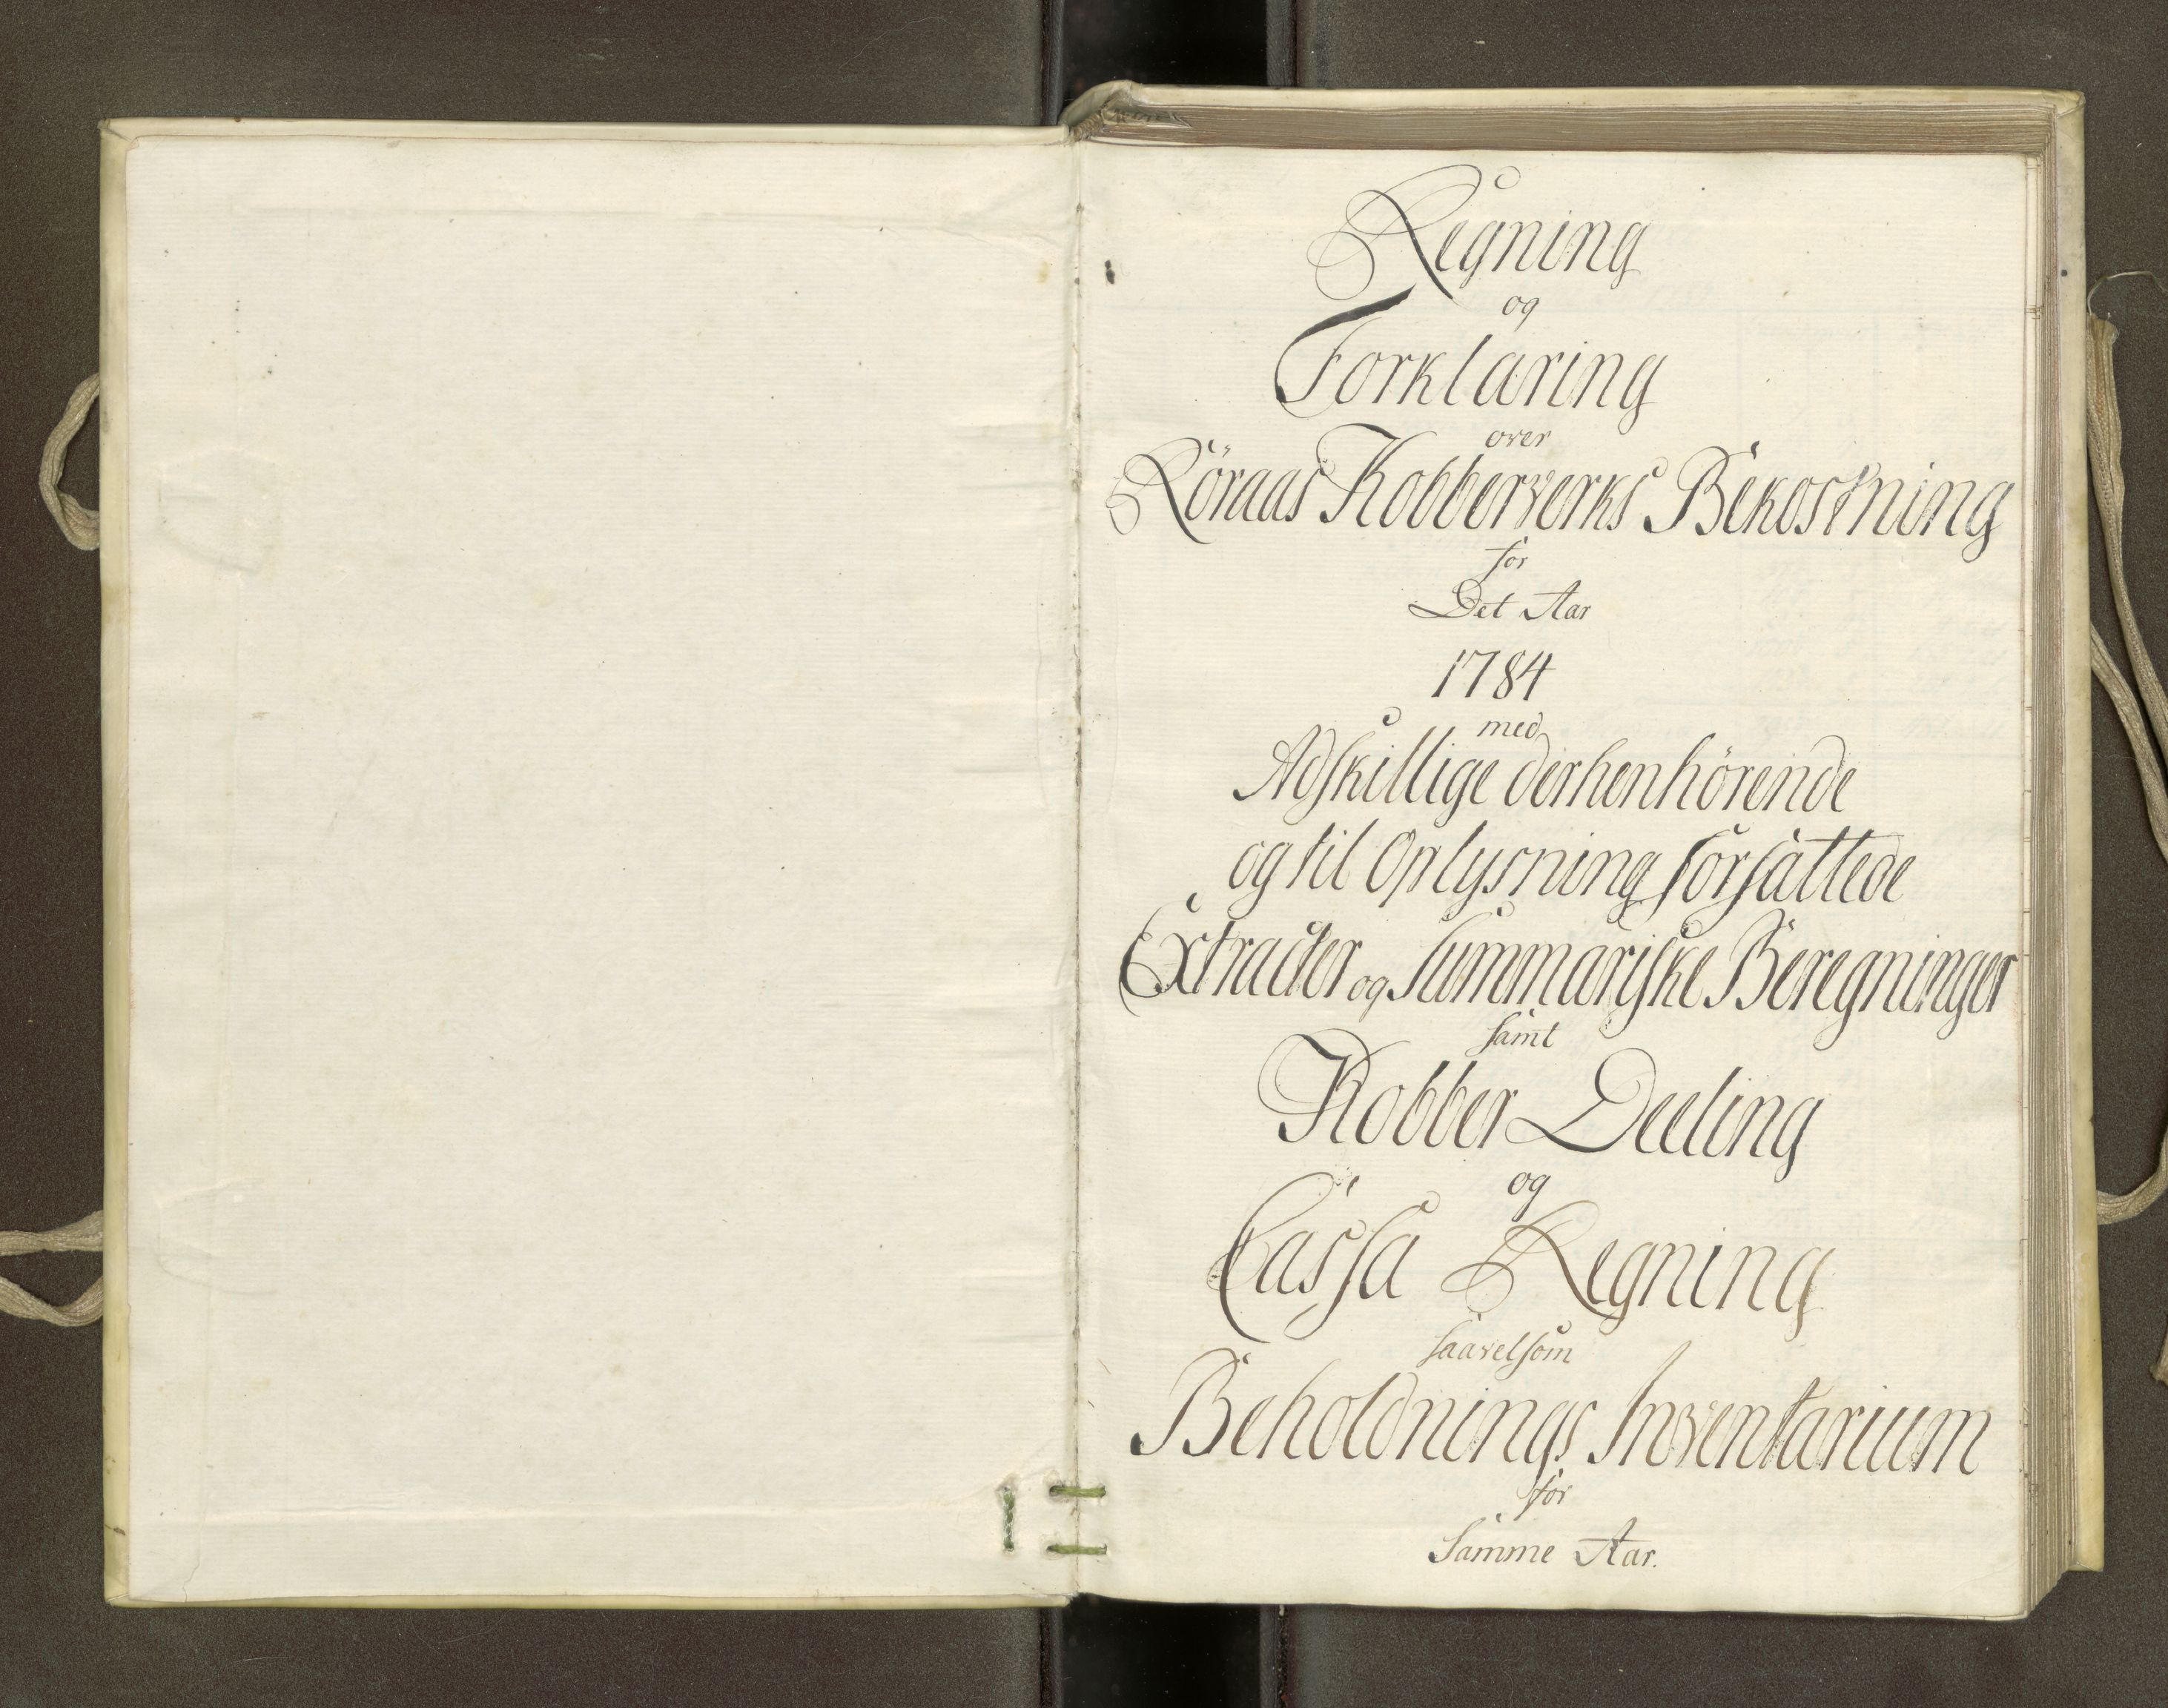 Regning
og
Forklaring
over
Röraas Kobberverks Bekostning
for
Det Aar
1784
med
Adskillige derhenhörende
og til Oplysning forfattede
Extracter og Summariske Beregninger
samt
Kobber Deeling
og
Cassa Regning
saavelsom
Beholdnings Inventarium
for
Samme Aar.